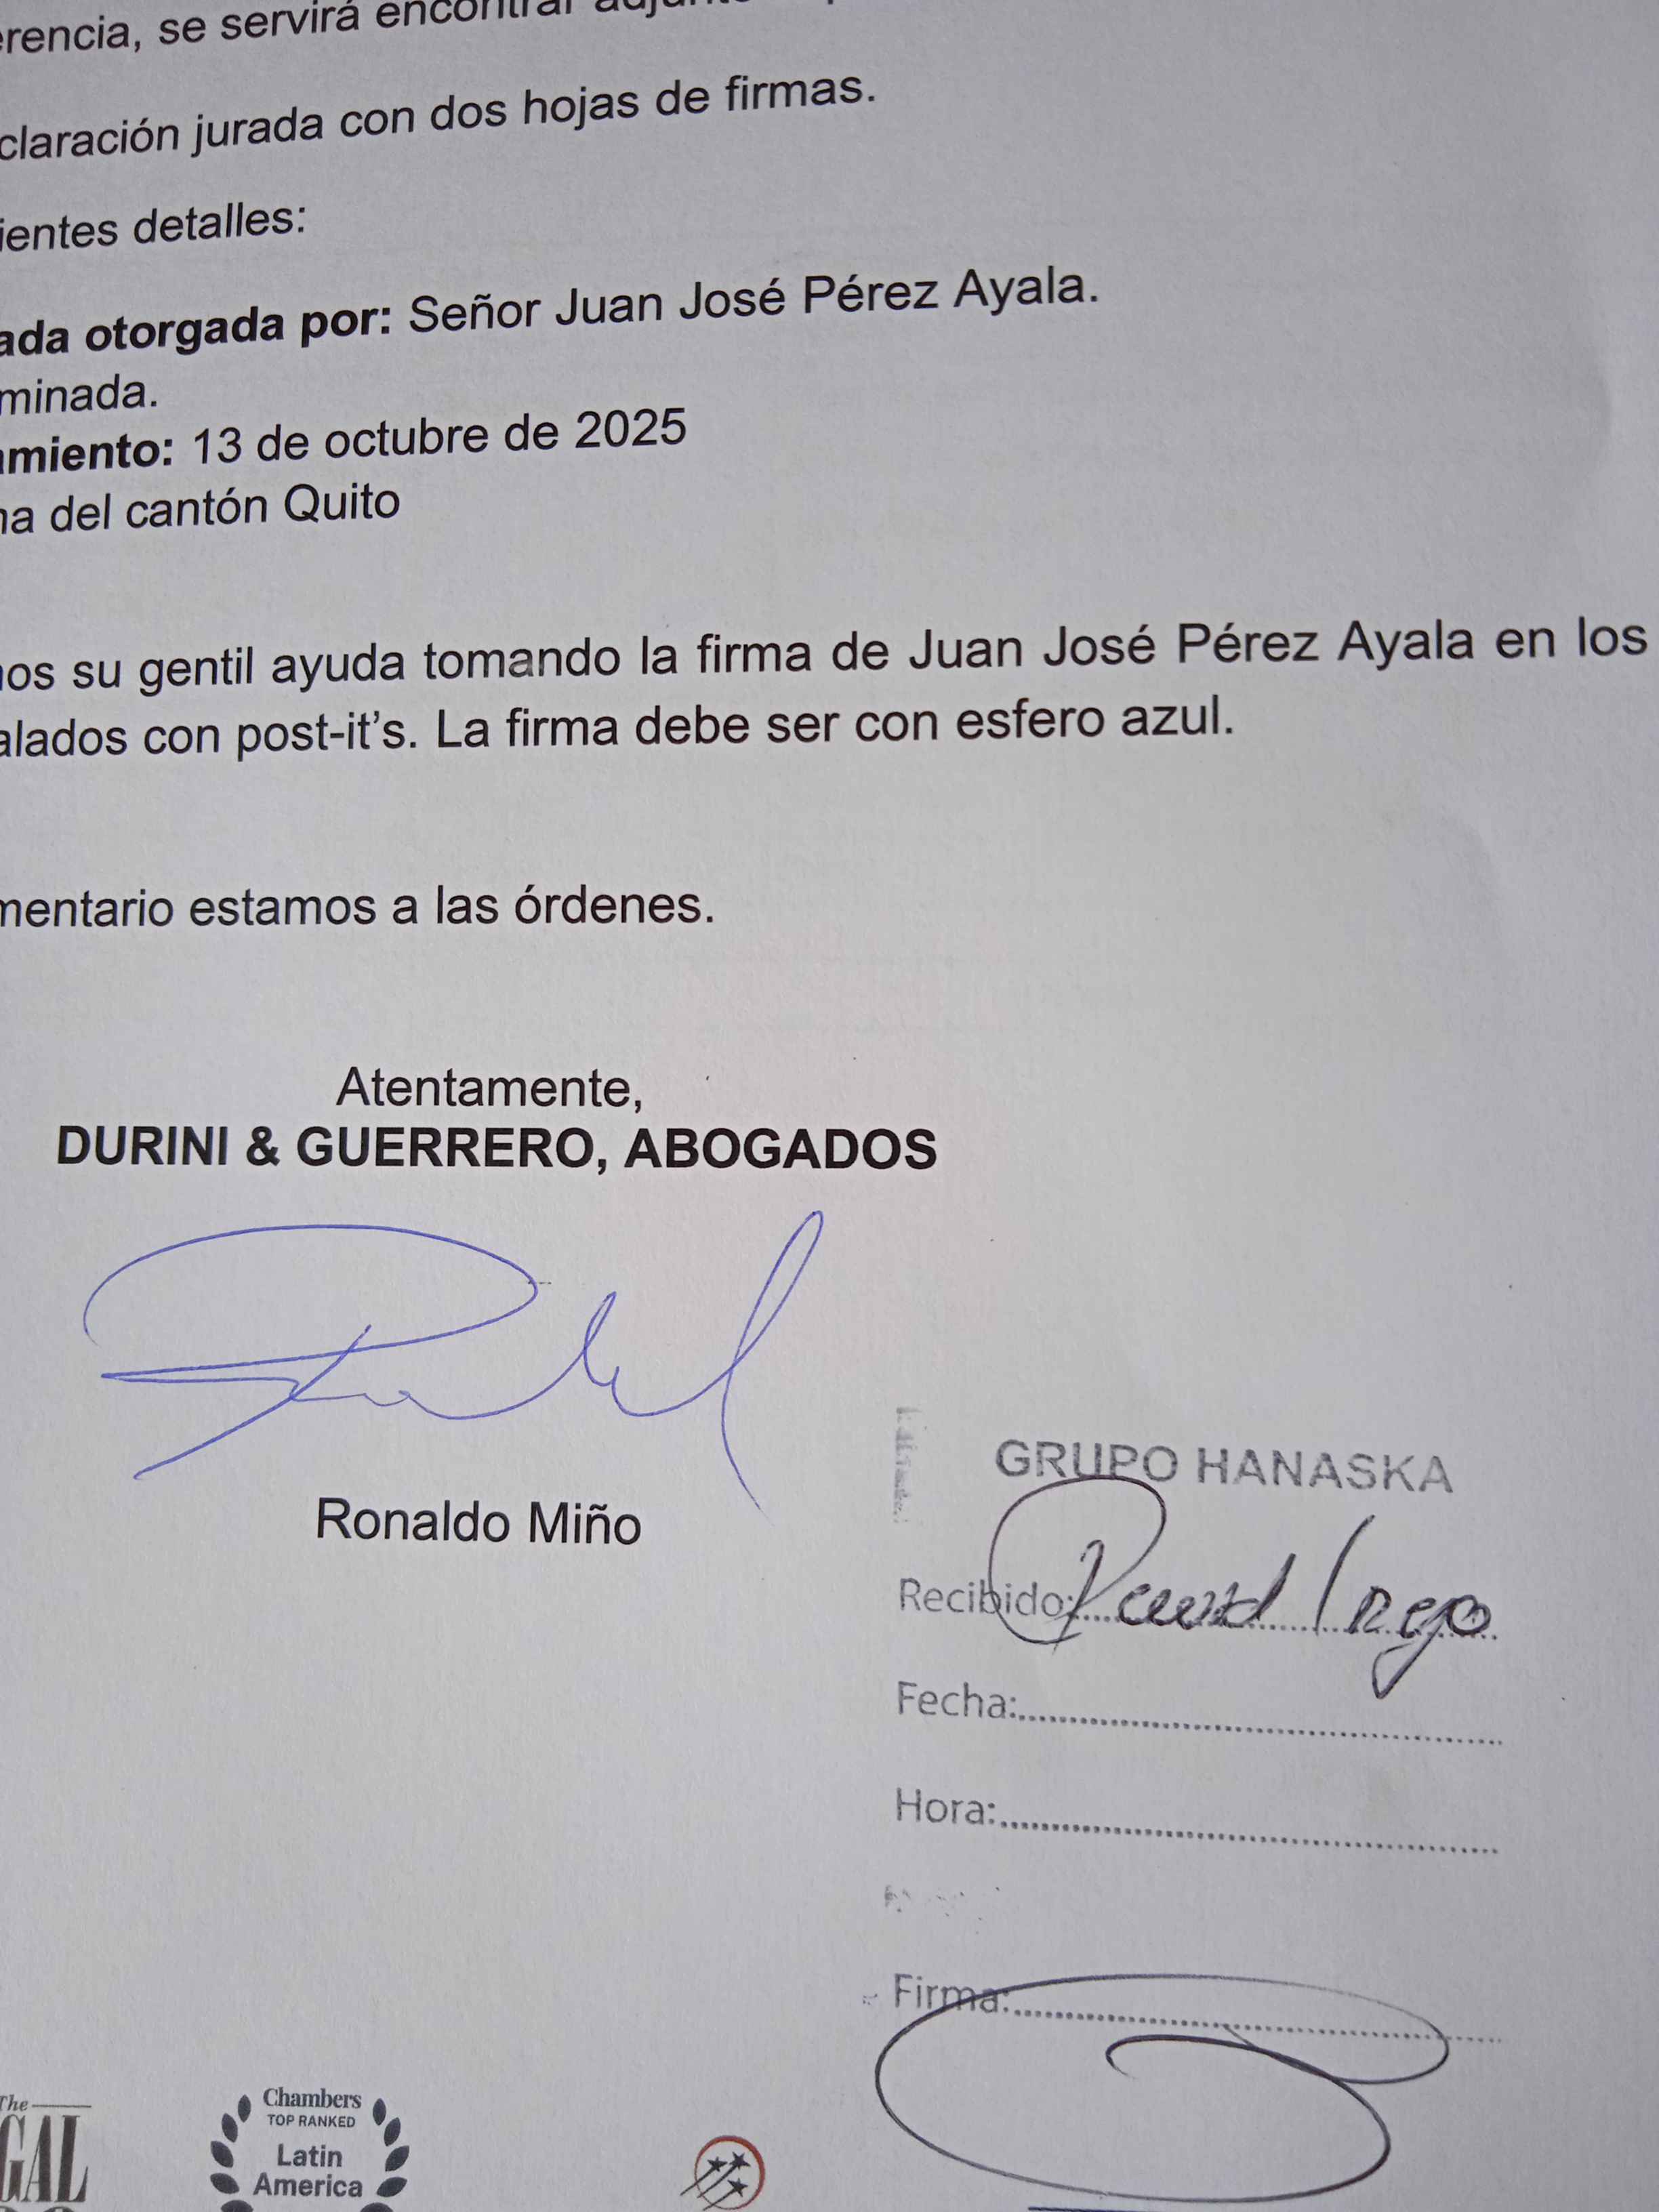 erencia, se servirá encontrar
claración jurada con dos hojas de firmas.
ientes detalles:
ada otorgada por: Señor Juan José Pérez Ayala.
minada.
amiento: 13 de octubre de 2025
na del cantón Quito
nos su gentil ayuda tomando la firma de Juan José Pérez Ayala en los
alados con post-it's. La firma debe ser con esfero azul.
mentario estamos a las órdenes.
Atentamente,
DURINI & GUERRERO, ABOGADOS
Ronaldo Miño
GRUPO HANASKA
Recibido:
Fecha:
Hora:
Firma:
The
GAL
Chambers
TOP RANKED
Latin
America